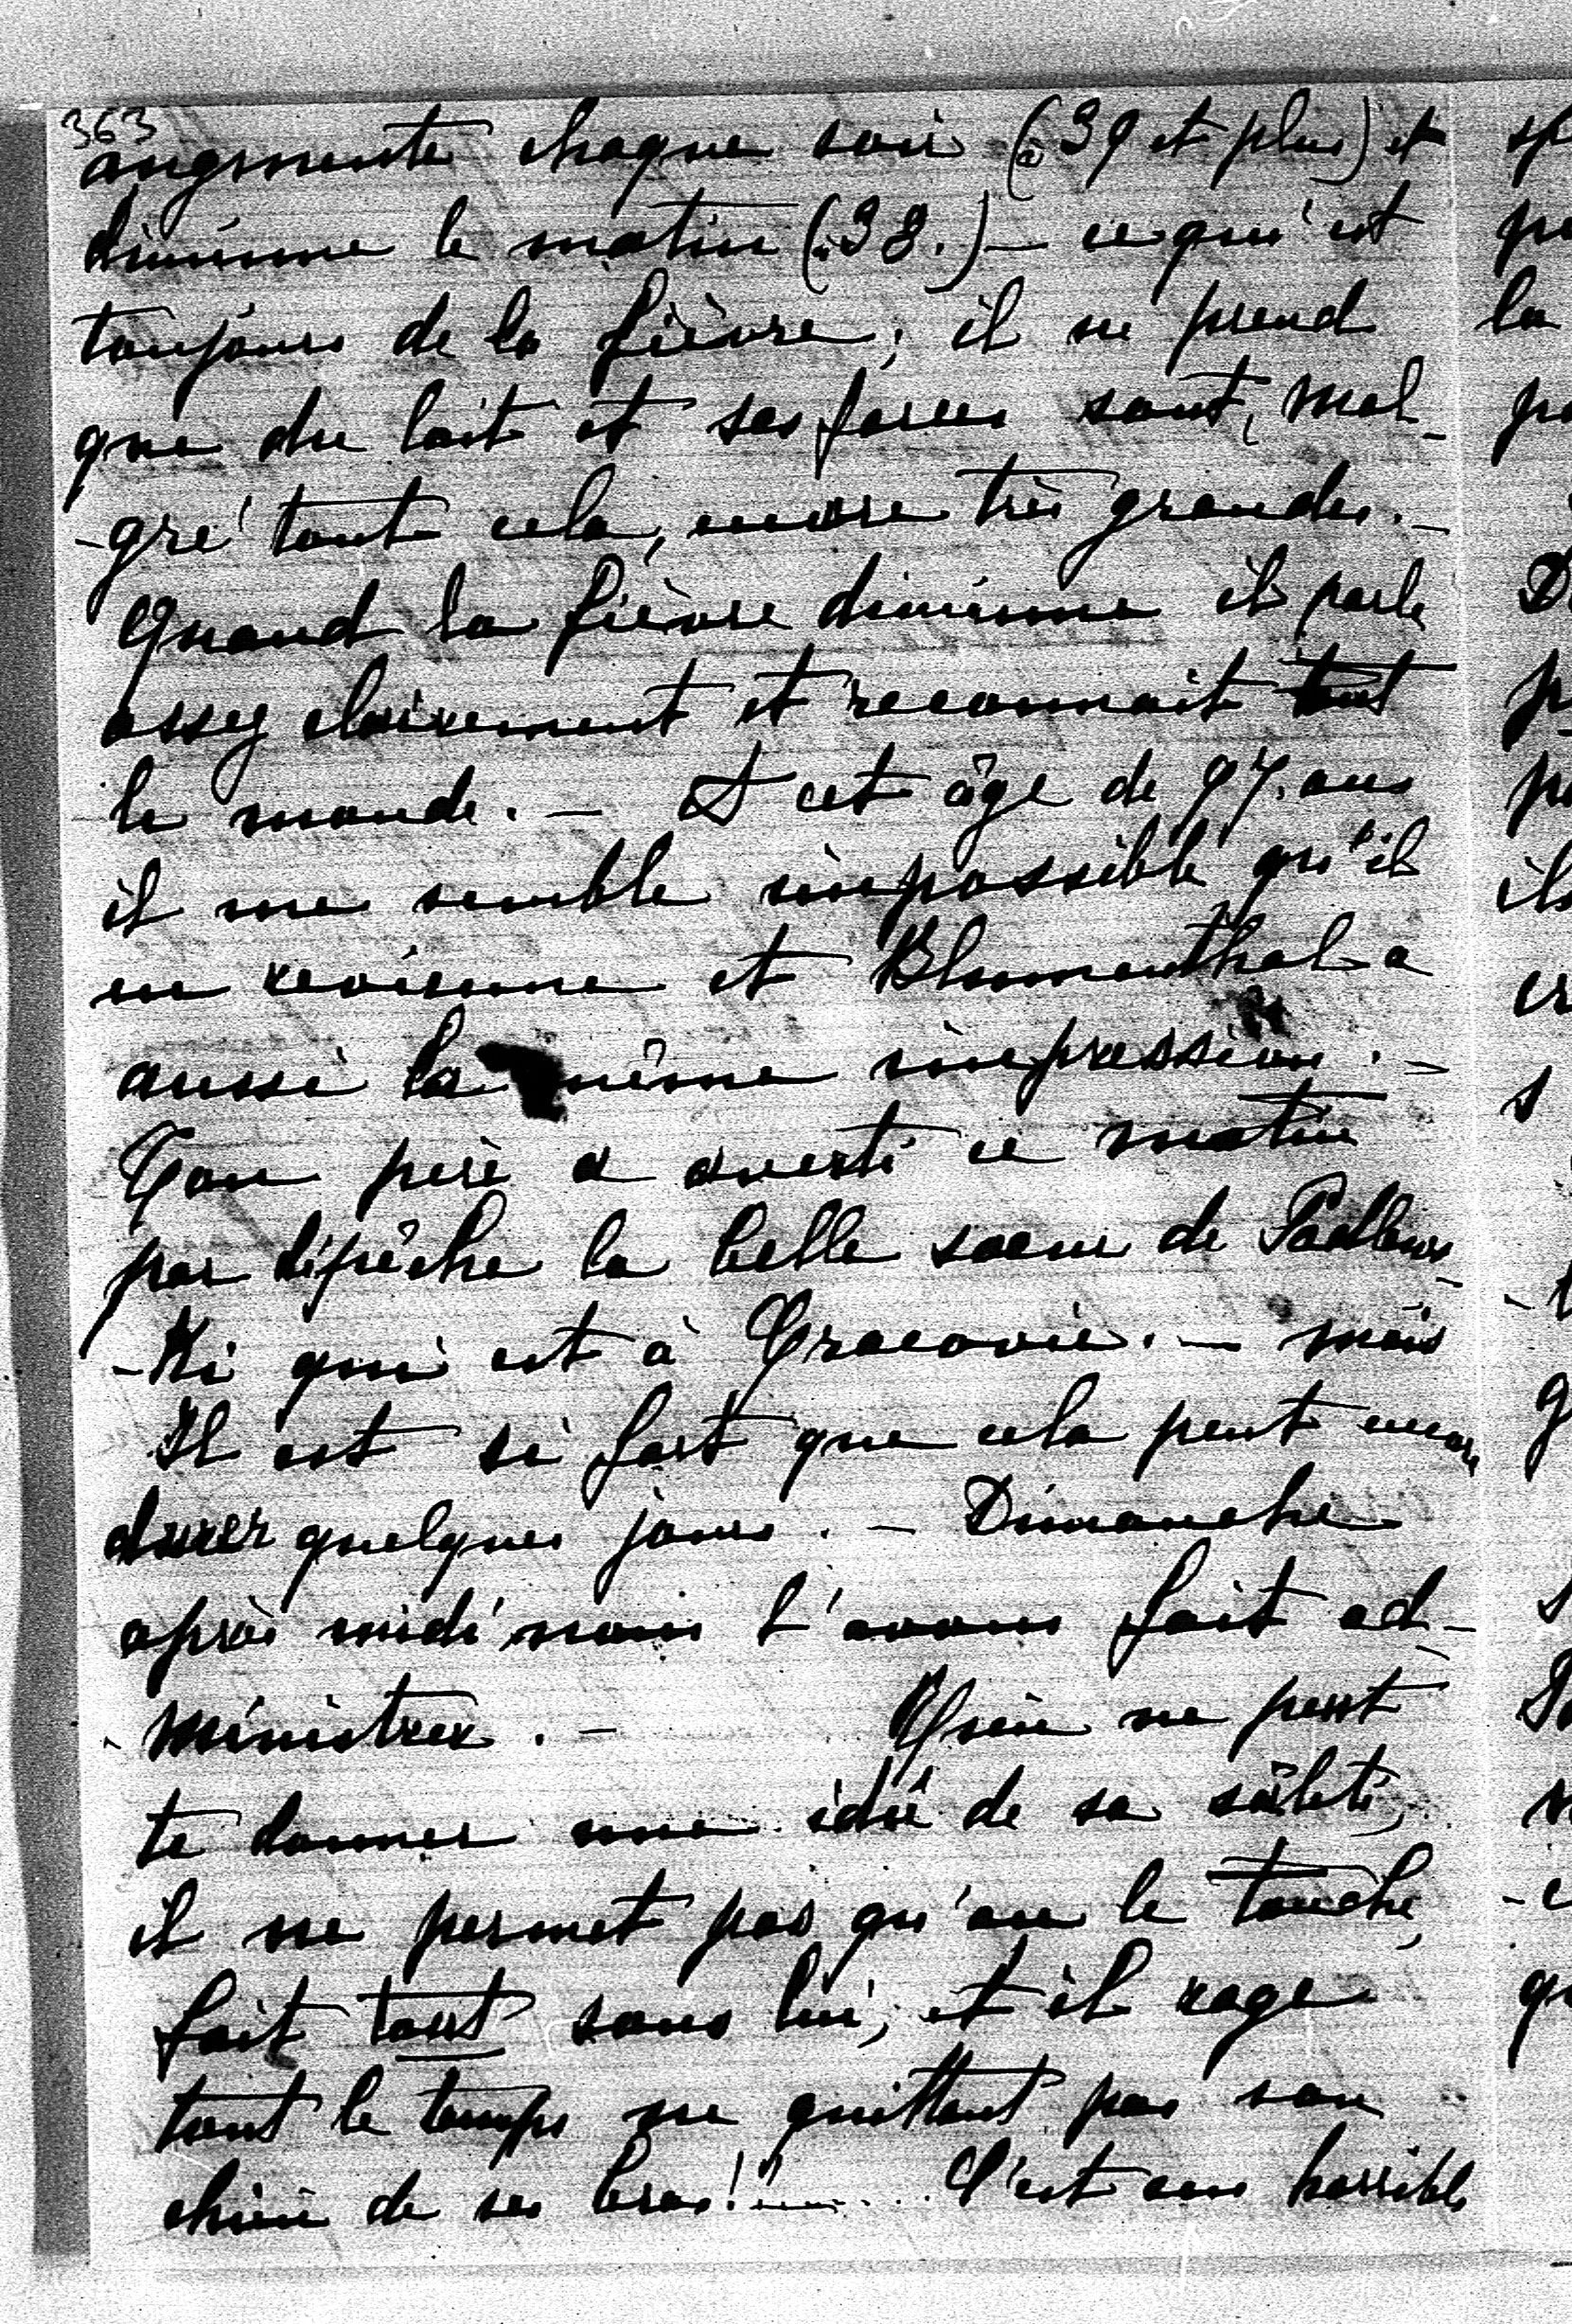 363
augmente chaque soir (à 39 et plus) et
diminue le matin (à 38.) — ce qui est
toujours de la fièvre; il ne prend
que du lait et ses forces sont, mal-
-gré tout cela, encore très grandes. —
Quand la fièvre diminue il parle
assez clairement et reconnait tout
le monde. — A cet âge de 97. ans
il me semble impossible qu'il
en revienne et Blumenthal a
aussi la même impression. —
Ton père a averti ce matin
par dépêche la belle soeur de Padlews-
-Ki qui est à Cracovie. — mais
Il est si fort que cela peut encore
durer quelques jours. — Dimanche
après midi nous l'avons fait ad-
-ministrer. — Rien ne peut
te donner une idée de sa sâleté,
il ne permet pas qu'on le touche,
fait tout sous lui, et il rage
tout le temps ne quittant pas son
chien de ses bras! .... C'est une horrible